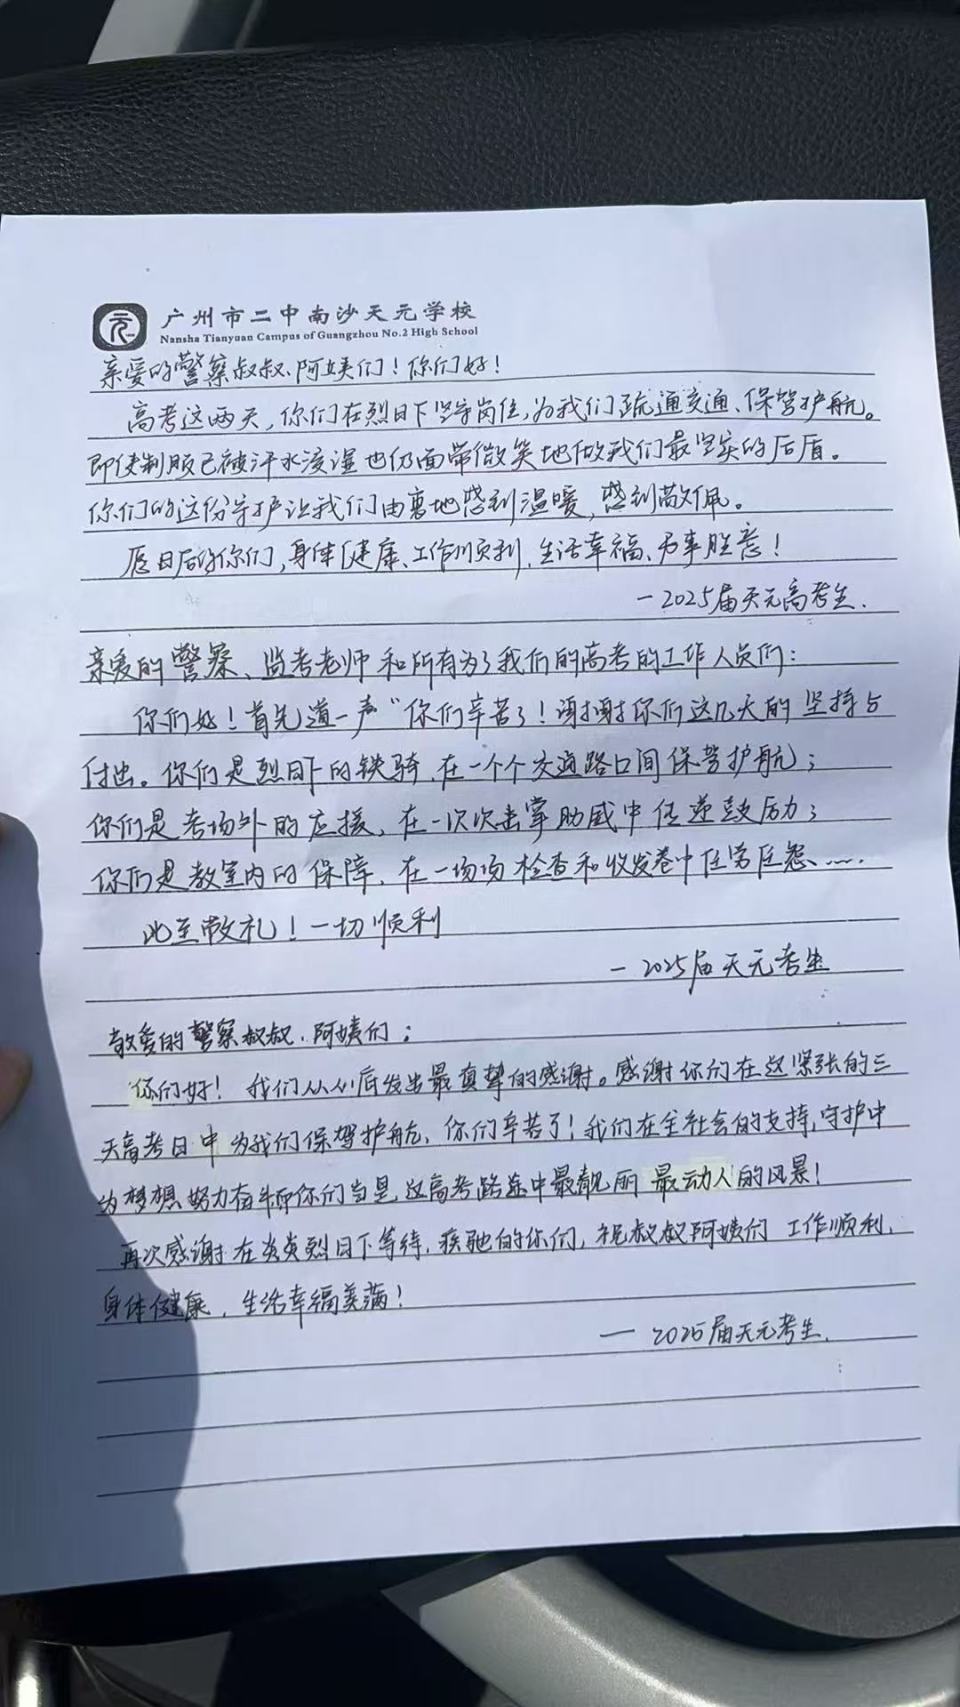 广州市二中南沙天元学校
Nansha Tianyuan Campus of Guangzhou No.2 High School
亲爱的警察叔叔、阿姨们！你们好！
高考这两天，你们在烈日下坚守岗位，为我们疏通交通、保驾护航。
即使制服已被汗水浸湿也仍面带微笑地做我们最坚实的后盾。
你们的这份守护让我们由衷地感到温暖，感到敬佩。
愿日后的你们，身体健康、工作顺利、生活幸福、万事胜意！
—2025届天元高考生.
亲爱的警察、监考老师和所有为了我们的高考的工作人员们：
你们好！首先道一声“你们辛苦了！谢谢你们这几天的坚持与
付出。你们是烈日下的铁骑，在一个个交通路口间保驾护航；
你们是考场外的应援，在一次次击掌助威中传递鼓励力；
你们是教室内的保障，在一场场检查和收发卷中任劳任怨、……
此至敬礼！一切顺利
—2025届天元考生
敬爱的警察叔叔、阿姨们；
你们好！我们从心底发出最真挚的感谢。感谢你们在这紧张的三
天高考日中为我们保驾护航，你们辛苦了！我们在全社会的支持，守护中
为梦想努力奋斗而你们当是这高考路途中最靓丽最动人的风景！
再次感谢在炎炎烈日下等待，疾驰的你们，祝叔叔阿姨们工作顺利，
身体健康，生活幸福美满！
— 2025届天元考生.